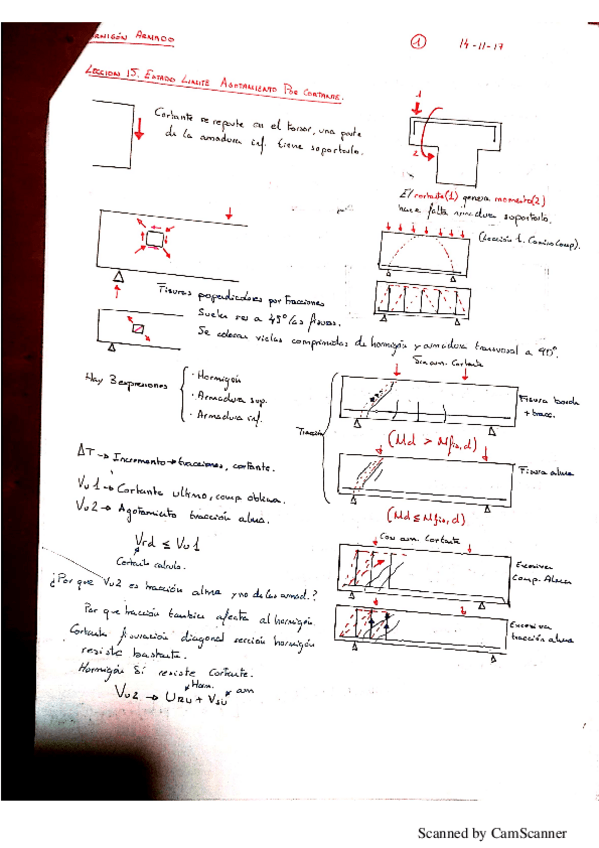 HORMIGÓN ARMADO
1
14-11-17
LECCION 15. ESTADO LIMITE AGOTAMIENTO POR CORTANTE.
Cortante se reparte en el torsor, una parte
de la armadura inf. tiene soportarlo.
1
2
El cortante(1) genera momento(2)
hace falta armadura soportarlo.
(Lección 1. Camino Comp).
Fisuras perpendiculares por tracciones
Suelen ser a 45° las fisuras.
Se colocan vielas comprimidas de hormigón y armadura transversal a 90°.
Hay 3 expresiones
· Hormigón
· Armadura sup.
· Armadura inf.
Sin arm. Cortante
Fisura borde
+ tracc.
Tracción
(Md > Mfis,d)
Fisura alma
(Md ≤ Mfis,d)
ΔT → Incremento → tracciones, cortante.
Vu1 → Cortante ultimo, comp oblicua.
Vu2 → Agotamiento tracción alma.
Vrd ≤ Vu1
Cortante calculo.
Con arm. Cortante
Excesiva
Comp. Alma
Excesiva
tracción alma
¿Por que Vu2 es tracción alma y no de las armad.?
Por que tracción tambien afecta al hormigón.
Cortante fisuración diagonal sección hormigón
resiste bastante.
Hormigón Sí resiste Cortante.
Horm.
arm
Vu2 → Uru + Vsu
Scanned by CamScanner